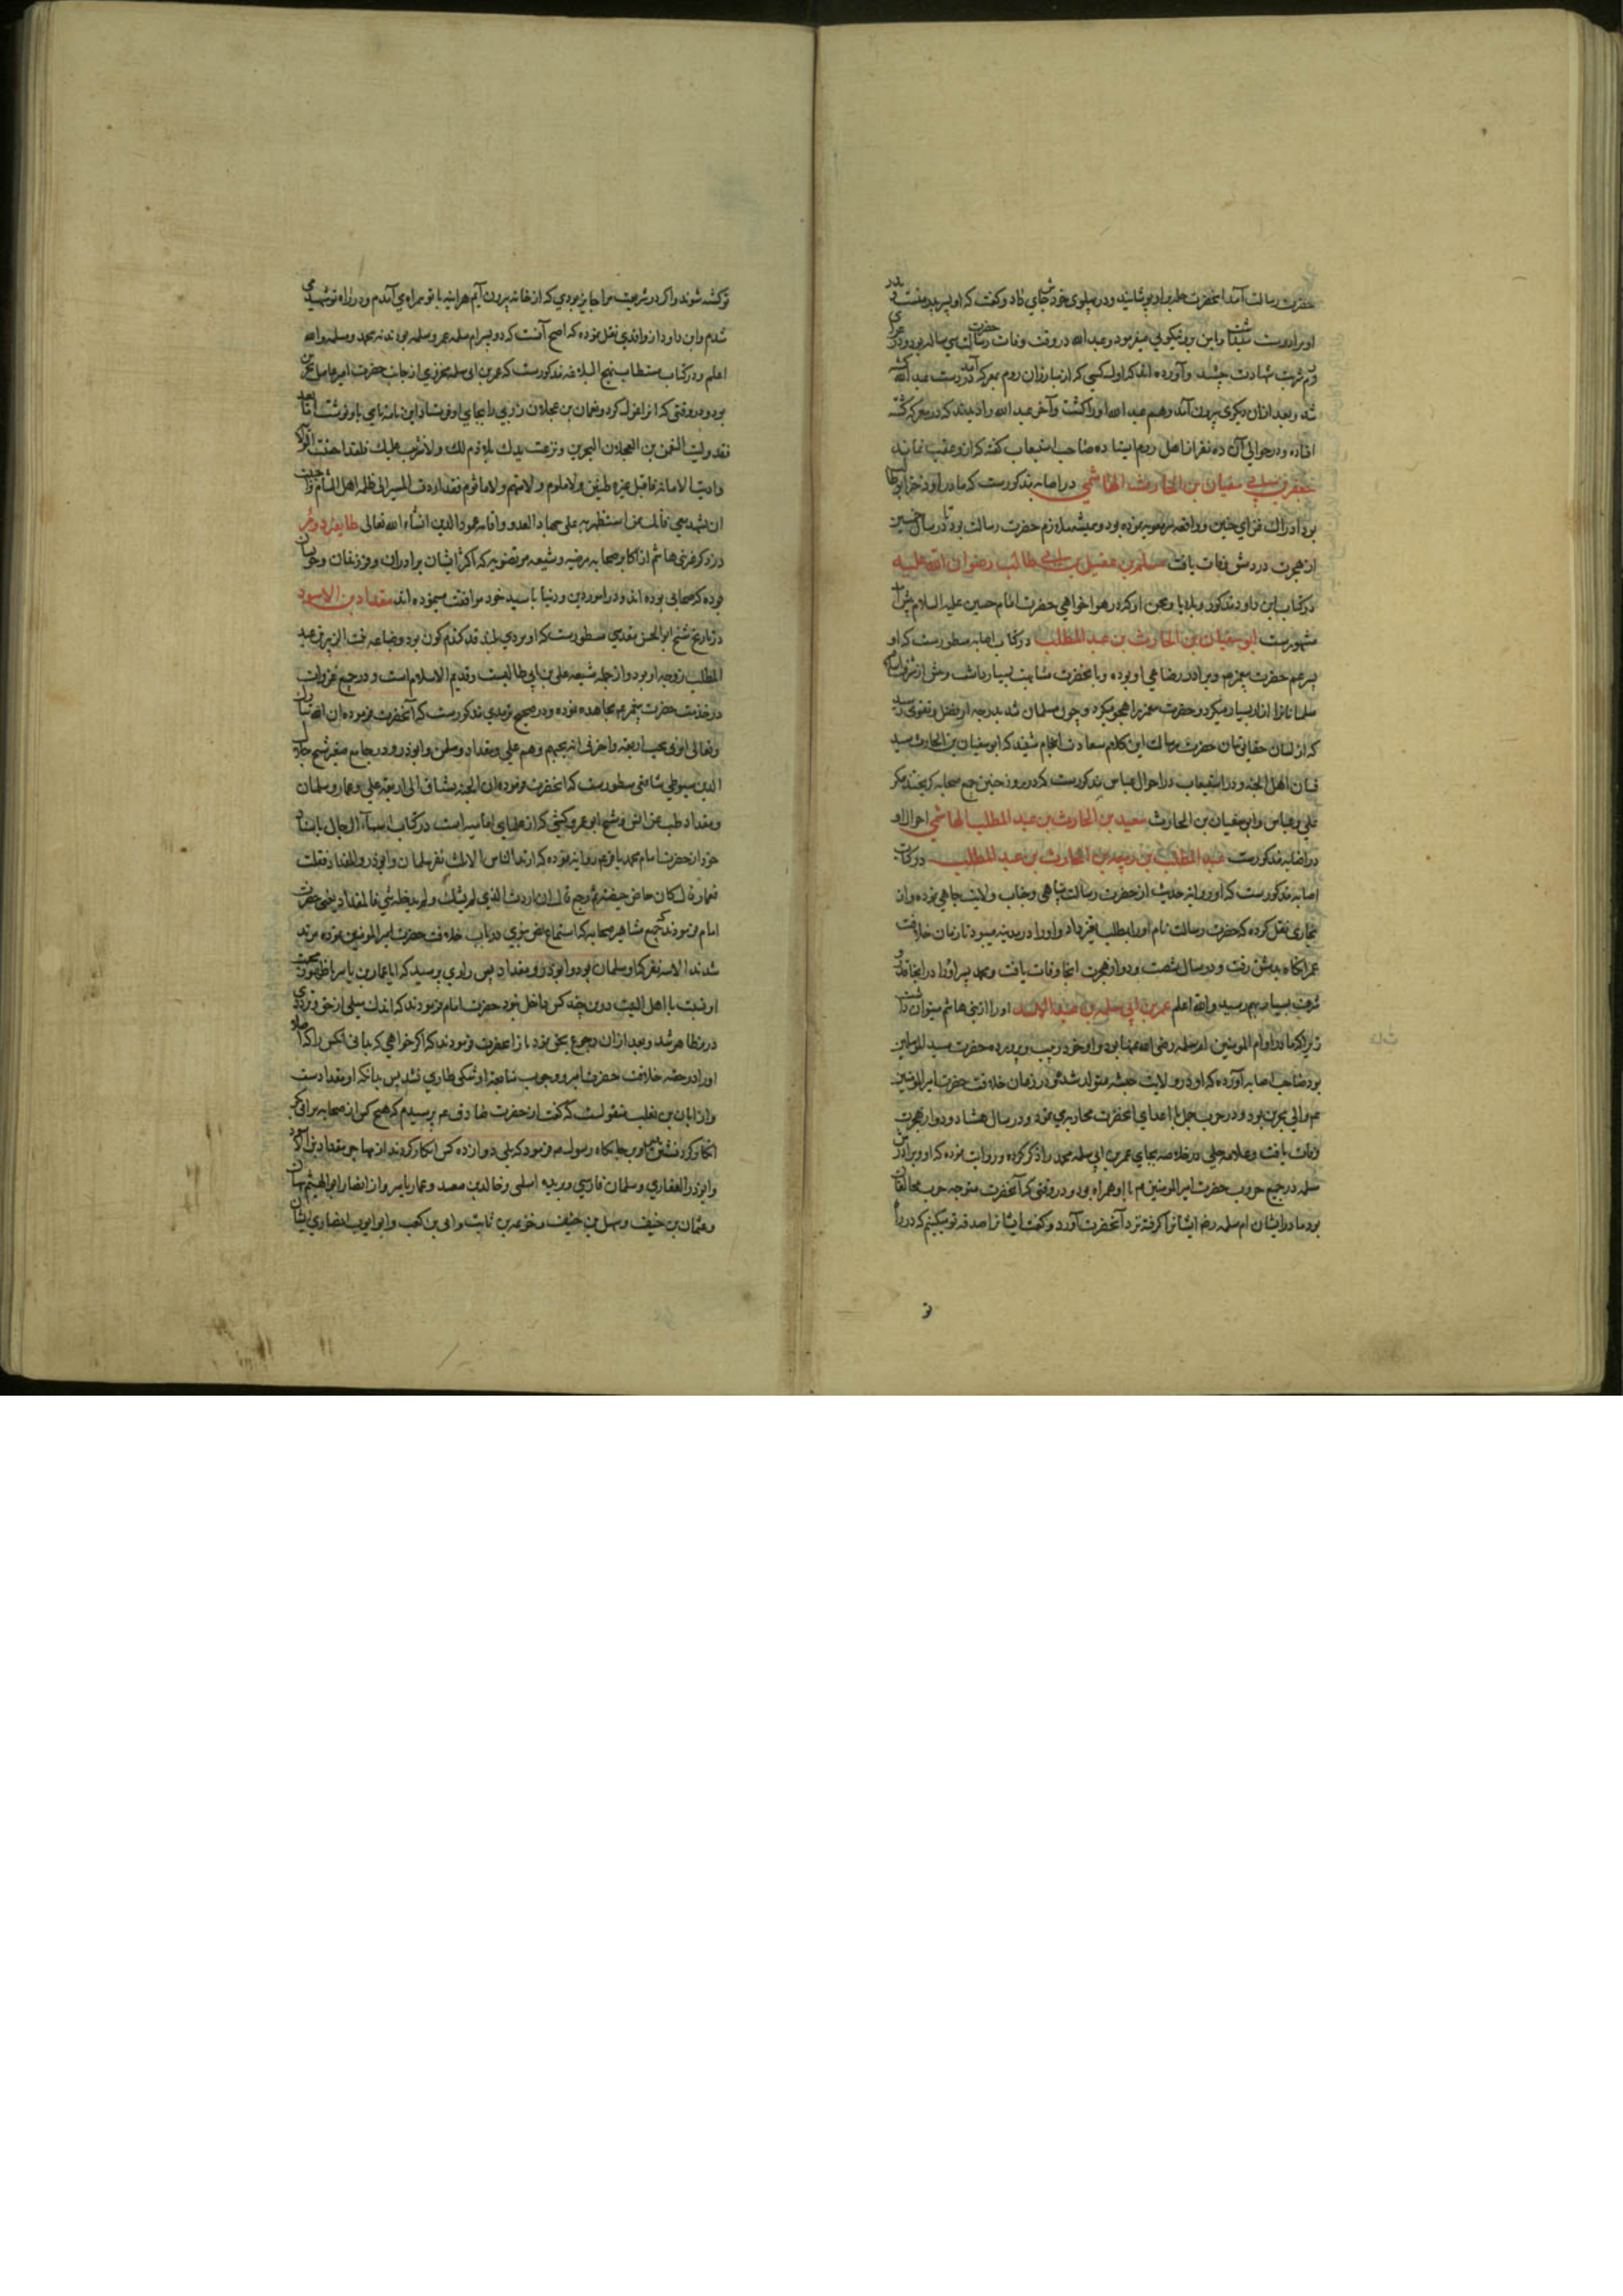 حضرت رسالت آمد آنحضرت حله برو پوشانید و در پهلوی خودش جای داد و گفت که او پسر پدر منست
او برادرست و عبدالله در وقت وفات حضرت رسالت سی ساله بود و در
شربت شهادت چشید و آورده اند که اول کسی که از مبارزان روم بمعرکه آمد در دست عبدالله کشته
شد و بعد ازان دیگری بیرون آمد و هم عبدالله او را کشت و آخر عبدالله را دیدند که در معرکه کشته
افتاده و در حوالی آن ده نفر از اهل روم صاحب استیعاب گفته که ازو عقب نماند
جعفر بن ابی سفیان بن الحارث الهاشمی در اصابه مذکورست که مادر او
بود ادراک غزای حنین و ملازم حضرت رسالت بود تا در سال
از هجرت در دمشق وفات یافت مسلم بن عقیل بن ابی طالب رضوان الله علیه
در کتاب ابن داود مذکور و بلایا و محن او که در هواخواهی حضرت امام حسین علیه السلام
مشهورست ابو سفیان بن الحارث بن عبد المطلب در کتاب اصابه مسطورست که او
پسر عم حضرت پیغمبر و برادر رضاعی او بوده و با آنحضرت مشابهت بسیار داشت و پیش از شرف اسلام
مسلمانان را آزار بسیار میکرد و حضرت پیغمبر را هجو میکرد و چون مسلمان شد بدرجه از فضل و تقوی رسید
که از لسان حقایق بیان حضرت رسالت این کلام سعادت انجام شنید که ابو سفیان بن الحارث سید
فتیان اهل الجنه و در استیعاب در احوال عباس مذکورست که در روز حنین جمیع صحابه گریختند مگر
علی و عباس و ابو سفیان بن الحارث سعید بن الحارث بن عبد المطلب الهاشمی احوال او
در اصابه مذکورست عبد المطلب بن ربیعه بن الحارث بن عبد المطلب در کتاب
اصابه مذکورست که او روایه حدیث از حضرت رسالت پناهی و جناب ولایت جاهی نموده و از
بخاری نقل کرده که حضرت رسالت نام او را بمطلب تغییر داد و او در مدینه میبود تا زمان خلافت
عمر آنگاه بدمشق رفت و در سال شصت و دو از هجرت آنجا وفات یافت و محمد پسر او را در آنجا
بهم رسید والله اعلم عمر بن ابی سلمه بن عبد الاسد او را از بنی هاشم میتوان داشت
زیرا که مادر او ام المومنین ام سلمه رضی الله عنها بود و او خود ربیب و پرورده حضرت سید المرسلین
بود صاحب اصابه آورده که او در ولایت حبشه متولد شد و در زمان خلافت حضرت امیر المومنین
والی بحرین بود و در حرب جمل با اعدای آنحضرت محاربه نمود و در سال هشتاد و دو از هجرت
وفات یافت و علامه حلی در خلاصه بجای عمر بن ابی سلمه محمد را ذکر کرده و روایت نموده که او و برادرش
سلمه در جمیع حروب حضرت امیر المومنین با او همراه بود و در وقتی که آنحضرت متوجه حرب مخالفان
بود مادر ایشان ام سلمه رض ایشانرا گرفته نزد آنحضرت آورد و گفت ایشانرا صدقه تو میکنم که در راه
تو
تو کشته شوند و اگر در شریعت مرا جایز بودی که از خانه بیرون آیم هر آینه با تو همراه می آمدم و در راه تو شهید می
شدم و ابن داود از واقدی نقل نموده که اصح آنست که دو پسر ام سلمه عمر و سلمه بودند نه محمد و سلمه والله
اعلم و در کتاب مستطاب نهج البلاغه مذکورست که عمر بن ابی سلمه مخزومی از جانب حضرت امیر عامل بحرین
بود و در وقتی که او را عزل کرد و نعمان بن عجلان زرقی را بجای او فرستاد این نامه نامی باو نوشت اما بعد
فقد ولیت النعمن بن العجلان البحرین و نزعت یدک بلا ذم لک ولا تثریب علیک فلقد احسنت الولایه
و ادیت الامانه فاقبل غیر ظنین ولا ملوم ولا متهم ولا ماثوم فقد اردت المسیر الی ظلمه اهل الشام و احببت
ان تشهد معی فانک ممن استظهر به علی جهاد العدو و اقامه عمود الدین انشاء الله تعالی طایفه دوم
در ذکر غیر بنی هاشم از اکابر صحابه مرضیه و شیعه مرتضویه که اکثر ایشان برادران و فرزندان و خویشان
بوده که صحابی بوده اند و در امور دین و دنیا با سید خود موافقت مینموده اند مقداد بن الاسود
در تاریخ شیخ ابو الحسن مسطورست که او مردی بلند قد گندم گون بود و ضباعه بنت الزبیر بن عبد
المطلب زوجه او بود و از جمله شیعه علی بن ابی طالبست و قدیم الاسلام است و در جمیع غزوات
در خدمت حضرت پیغمبر مجاهده نموده و در صحیح ترمذی مذکورست که آنحضرت فرموده ان الله تبارک
و تعالی امرنی بحب اربعه و اخبرنی انه یحبهم و هم علی و مقداد و سلمن و ابوذر و در جامع صغیر شیخ جلال
الدین سیوطی شافعی مسطورست که آنحضرت فرموده ان الجنه تشتاق الی اربعه علی و عمار و سلمان
و مقداد طب عن انس و شیخ ابو عمرو کشی که از علمای امامیه است در کتاب اسماء الرجال باسناد
خود از حضرت امام محمد باقر روایه نموده که ارتد الناس الا ثلث نفر سلمان و ابوذر و المقداد فقلت
فعمار قال کان حاص حیصة ثم رجع قال ان اردت الذی لم یشک و لم یدخله شی فالمقداد یعنی حضرت
امام فرمودند که جمیع مشاهیر صحابه که استماع نص نبوی در باب خلافت حضرت امیر المومنین نموده مرتد
شدند الا سه نفر که آن سلمان بود و ابوذر و مقداد پس راوی پرسید که ایا عمار بن یاسر با ظهور محبت
او نسبت با اهل البیت درین چند کس داخل نبود حضرت امام فرمودند که اندک میلی از حق و ترددی
درو ظاهر شد و بعد ازان رجوع بحق نمود باز آنحضرت فرمودند که اگر خواهی که بدانی آنکس را که
او را در حقیه خلافت حضرت امیر و وجوب متابعت او شکی طاری نشد پس بدانکه او مقدادست
و از ابان بن تغلب منقولست که گفت از حضرت صادق پرسیدم که هیچ کس از صحابه بر ابی بکر
انکار کرد نشستن او بر جایگاه رسول م فرمود که بلی دوازده کس انکار کردند از مهاجر مقداد بن اسود
و ابوذر الغفاری و سلمان فارسی و بریده اسلمی و خالد بن سعید و عمار یاسر و از انصار ابو الهیثم تیهان
و عثمان بن حنیف و سهل بن حنیف و خزیمه بن ثابت و ابی بن کعب و ابو ایوب انصاری ایشان